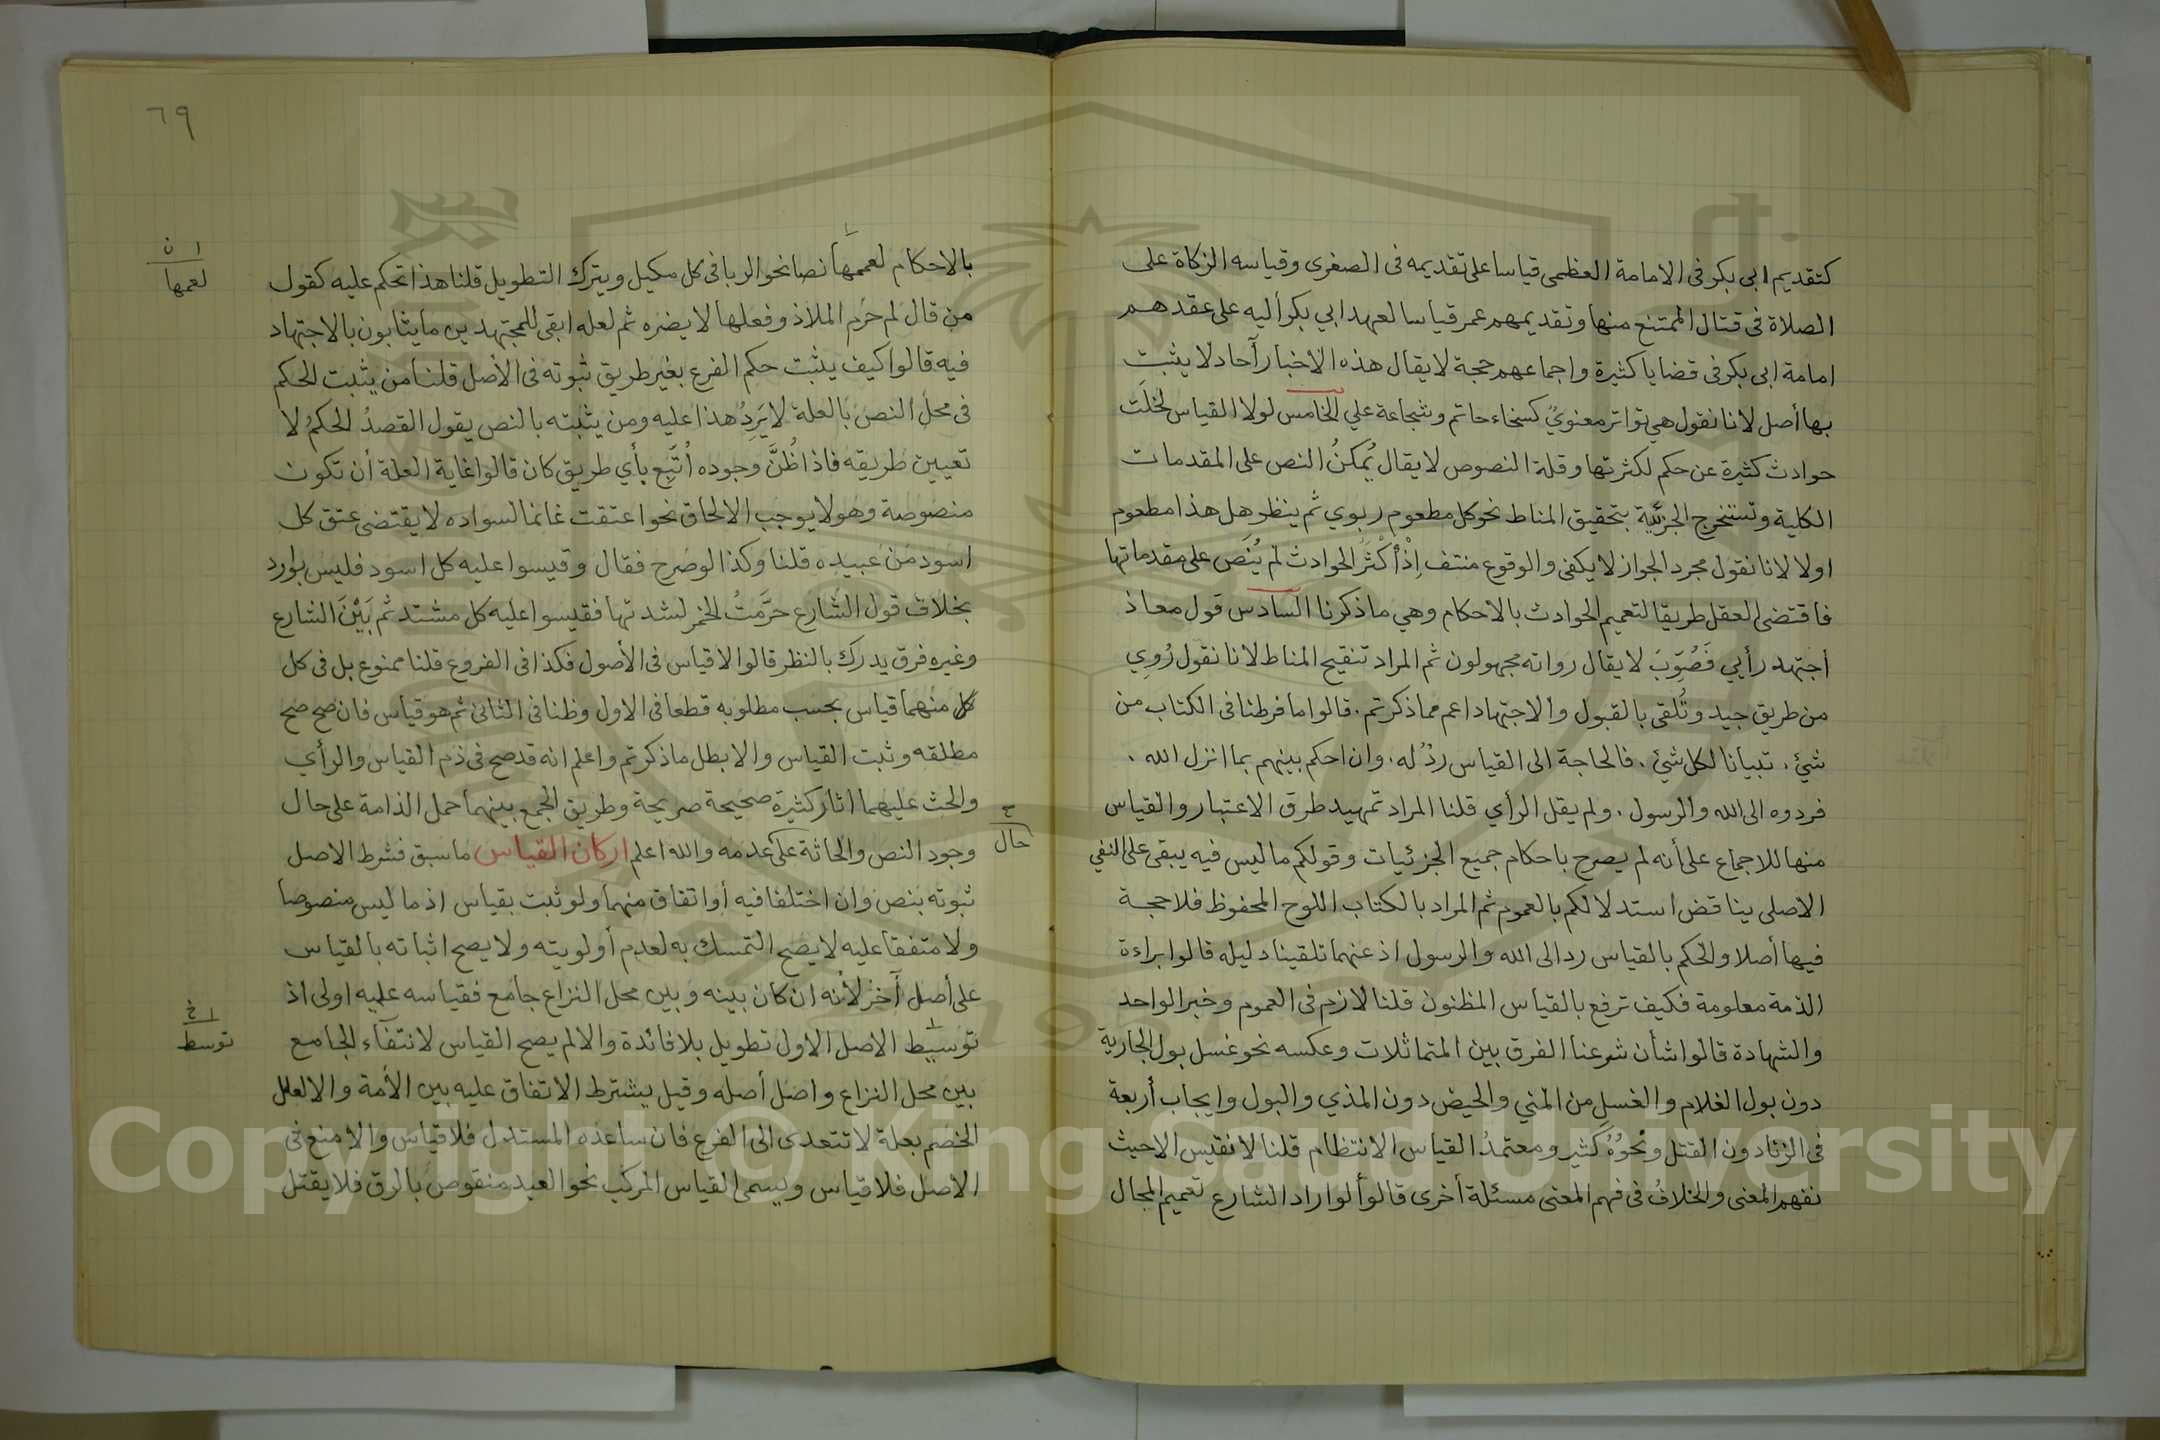 كتقديم ابى بكر فى الامامة العظمى قياسا على تقديمه فى الصغرى وقياسه الزكاة على
الصلاة فى قتال الممتنع منها وتقديمهم عمر قياسا لعهد ابي بكر اليه على عقدهم
امامة ابى بكر فى قضايا كثيرة واجماعهم حجة لا يقال هذه الاخبار آحاد لا يثبت
بها أصل لانا نقول هي تواتر معنويٌ كسخاء حاتم وشجاعة علي الخامس لولا القياس لخلَت
حوادث كثيرة عن حكم لكثرتها وقلة النصوص لا يقال يُمكنُ النص على المقدمات
الكلية وتستخرج الجزئية بتحقيق المناط نحو كل مطعوم ربوي ثم ينظر هل هذا مطعوم
اولا لانا نقول مجرد الجواز لا يكفى والوقوع منتف إذْ أكْثَرُ الحوادث لم يُنَص على مقدماتها
فاقتضى العقل طريقا لتعميم الحوادث بالاحكام وهي ما ذكرنا السادس قول معاذ
اجتهد رأيي فَصُوِّبَ لا يقال رواته مجهولون ثم المراد تنقيح المناط لانا نقول رُوِي
من طريق جيد وتُلقى بالقبول والاجتهاد اعم مما ذكرتم . قالوا ما فرطنا فى الكتاب من
شئ . تبيانا لكل شئ . فالحاجة الى القياس ردٌ له . وان احكم بينهم بما انزل الله .
فردوه الى الله والرسول . ولم يقل الرأي قلنا المراد تمهيد طرق الاعتبار والقياس
منها للاجماع على أنه لم يصرح باحكام جميع الجزئيات وقولكم ما ليس فيه يبقى على النفي
الاصلى يناقض استدلالكم بالعموم ثم المراد بالكتاب اللوح المحفوظ فلا حجة
فيها أصلا والحكم بالقياس رد الى الله والرسول اذ عنهما تلقينا دليله قالوا براءة
الذمة معلومة فكيف ترفع بالقياس المظنون قلنا لازم فى العموم وخبر الواحد
والشهادة قالوا شأن شرعنا الفرق بين المتماثلات وعكسه نحو غسل بول الجارية
دون بول الغلام والغسل من المني والحيض دون المذي والبول وايجاب أربعة
فى الزنا دون القتل ونحوُهُ كثير ومعتمدُ القياس الانتظام قلنا لا نقيس الا حيث
نفهم المعنى والخلافُ فى فهم المعنى مسئلة أخرى قالوا لو اراد الشارع تعميم المحال
٦٩
بالاحكام لعممها نصا نحو الربا فى كل مكيل ويترك التطويل قلنا هذا تحكم عليه كقول
ا ن
لعمها
من قال لم حرم الملاذ وفعلها لا يضره ثم لعله ابقى للمجتهدين ما يثابون بالاجتهاد
فيه قالوا كيف يثبت حكم الفرع بغير طريق ثبوته فى الأصل قلنا من يثبت الحكم
فى محل النص بالعلة لا يَرِدُ هذا عليه ومن يثبته بالنص يقول القصدُ الحكمُ لا
تعيين طريقه فاذا ظُنَّ وجوده اُتُّبِع بأي طريق كان قالوا غاية العلة أن تكون
منصوصة وهو لا يوجب الالحاق نحو اعتقت غانما لسواده لا يقتضى عتق كل
اسود من عبيده قلنا وكذا لو صرح فقال وقيسوا عليه كل اسود فليس بوارد
بخلاف قول الشارع حرَّمتُ الخمر لشدتها فقيسوا عليه كل مشتد ثم بَيْنَ الشارع
وغيره فرق يدرك بالنظر قالوا لا قياس فى الأصول فكذا فى الفروع قلنا ممنوع بل فى كل
كل منهما قياس بحسب مطلوبه قطعا فى الاول وظنا فى الثانى ثم هو قياس فان صح صح
مطلقه وثبت القياس والا بطل ما ذكرتم واعلم انه قد صح فى ذم القياس والرأي
والحث عليهما اثار كثيرة صحيحة صريحة وطريق الجمع بينهما حمل الذامة على حال
ح
حال
وجود النص والحاثة على عدمه والله اعلم اركان القياس ما سبق فشرط الاصل
ثبوته بنص وان اختلفا فيه أو اتفاق منهما ولو ثبت بقياس اذ ما ليس منصوصا
ولا متفقا عليه لا يصح التمسك به لعدم أولويته ولا يصح اثباته بالقياس
على أصل آخر لأنه ان كان بينه وبين محل النزاع جامع فقياسه عليه اولى اذ
توسيط الاصل الاول تطويل بلا فائدة والا لم يصح القياس لانتفاء الجامع
ا خ
توسط
بين محل النزاع واصل أصله وقيل يشترط الاتفاق عليه بين الأمة والا لعلل
الخصم بعلة لا تتعدى الى الفرع فان ساعده المستدل فلا قياس والا منع فى
الاصل فلا قياس ويسمى القياس المركب نحو العبد منقوص بالرق فلا يقتل
Copyright © King Saud University